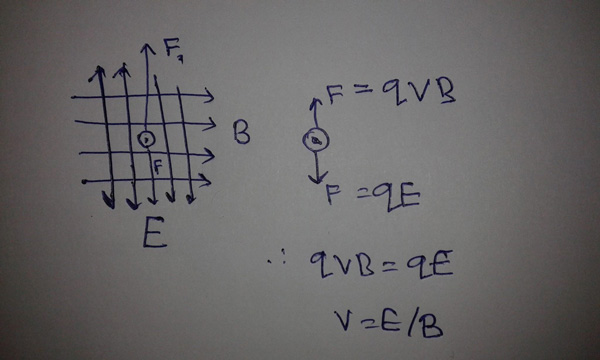 F₁
B
F
E
F = qVB
F = qE
∴ qVB = qE
V = E/B